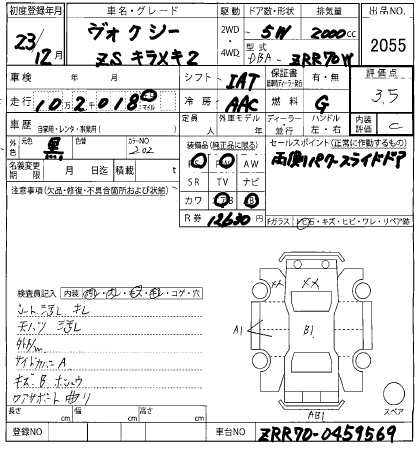 初度登録年月 車名・グレード 駆動 ドア数・形状 排気量 出品NO.
23/12月 ヴォクシー ZS キラメキ2 2WD・4WD 5W 2000cc 2055
型式 DBA- ZRR70W
車検 年 月 シフト IAT 保証書 有・無 評価点 3.5
走行 102千0180 冷房 AAC 燃料 G
車歴 自家用・レンタ・事業用( ) 定員 人 外車モデル 年 ディーラー・並行 ハンドル 左・右 内装評価 C
外色 元色 黒 色替 カラーNO 202
装備品(純正品に限る) セールスポイント(正常に作動するもの)
AW 両側パワースライドドア
名義変更期限 月 日迄 積載 t
SR TV ナビ
注意事項(欠品・修復・不具合箇所および状態)
カワ エアB
R券 12630 円
Fガラス トビ石・キズ・ヒビ・ワレ・リペア跡
検査員記入 内装 汚レ・スレ・キズ・キレ・コゲ・穴
シート汚レ キレ
天バリ 汚レ
サイドカバー A
キズ B
コアサポート 曲り
A1
B1
AB1
スペア
長さ cm 幅 cm 高さ cm
登録NO 車台NO ZRR70-0459569